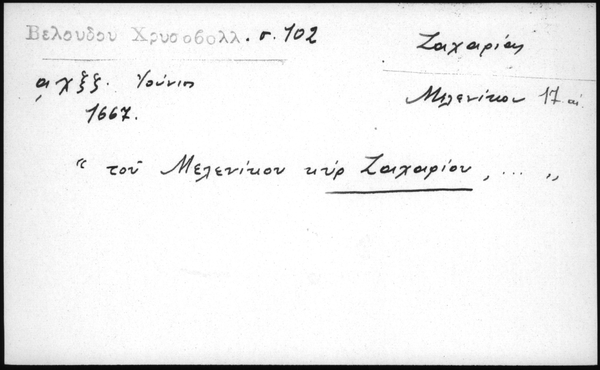 Βελουδου Χρυσοβολλ. σ. 102
Ζαχαρίας
͵αχξζ. Ιούνιος
Μελενίκου 17 αἰ.
1667.
“ τοῦ Μελενίκου κὺρ Ζαχαρίου, ... „